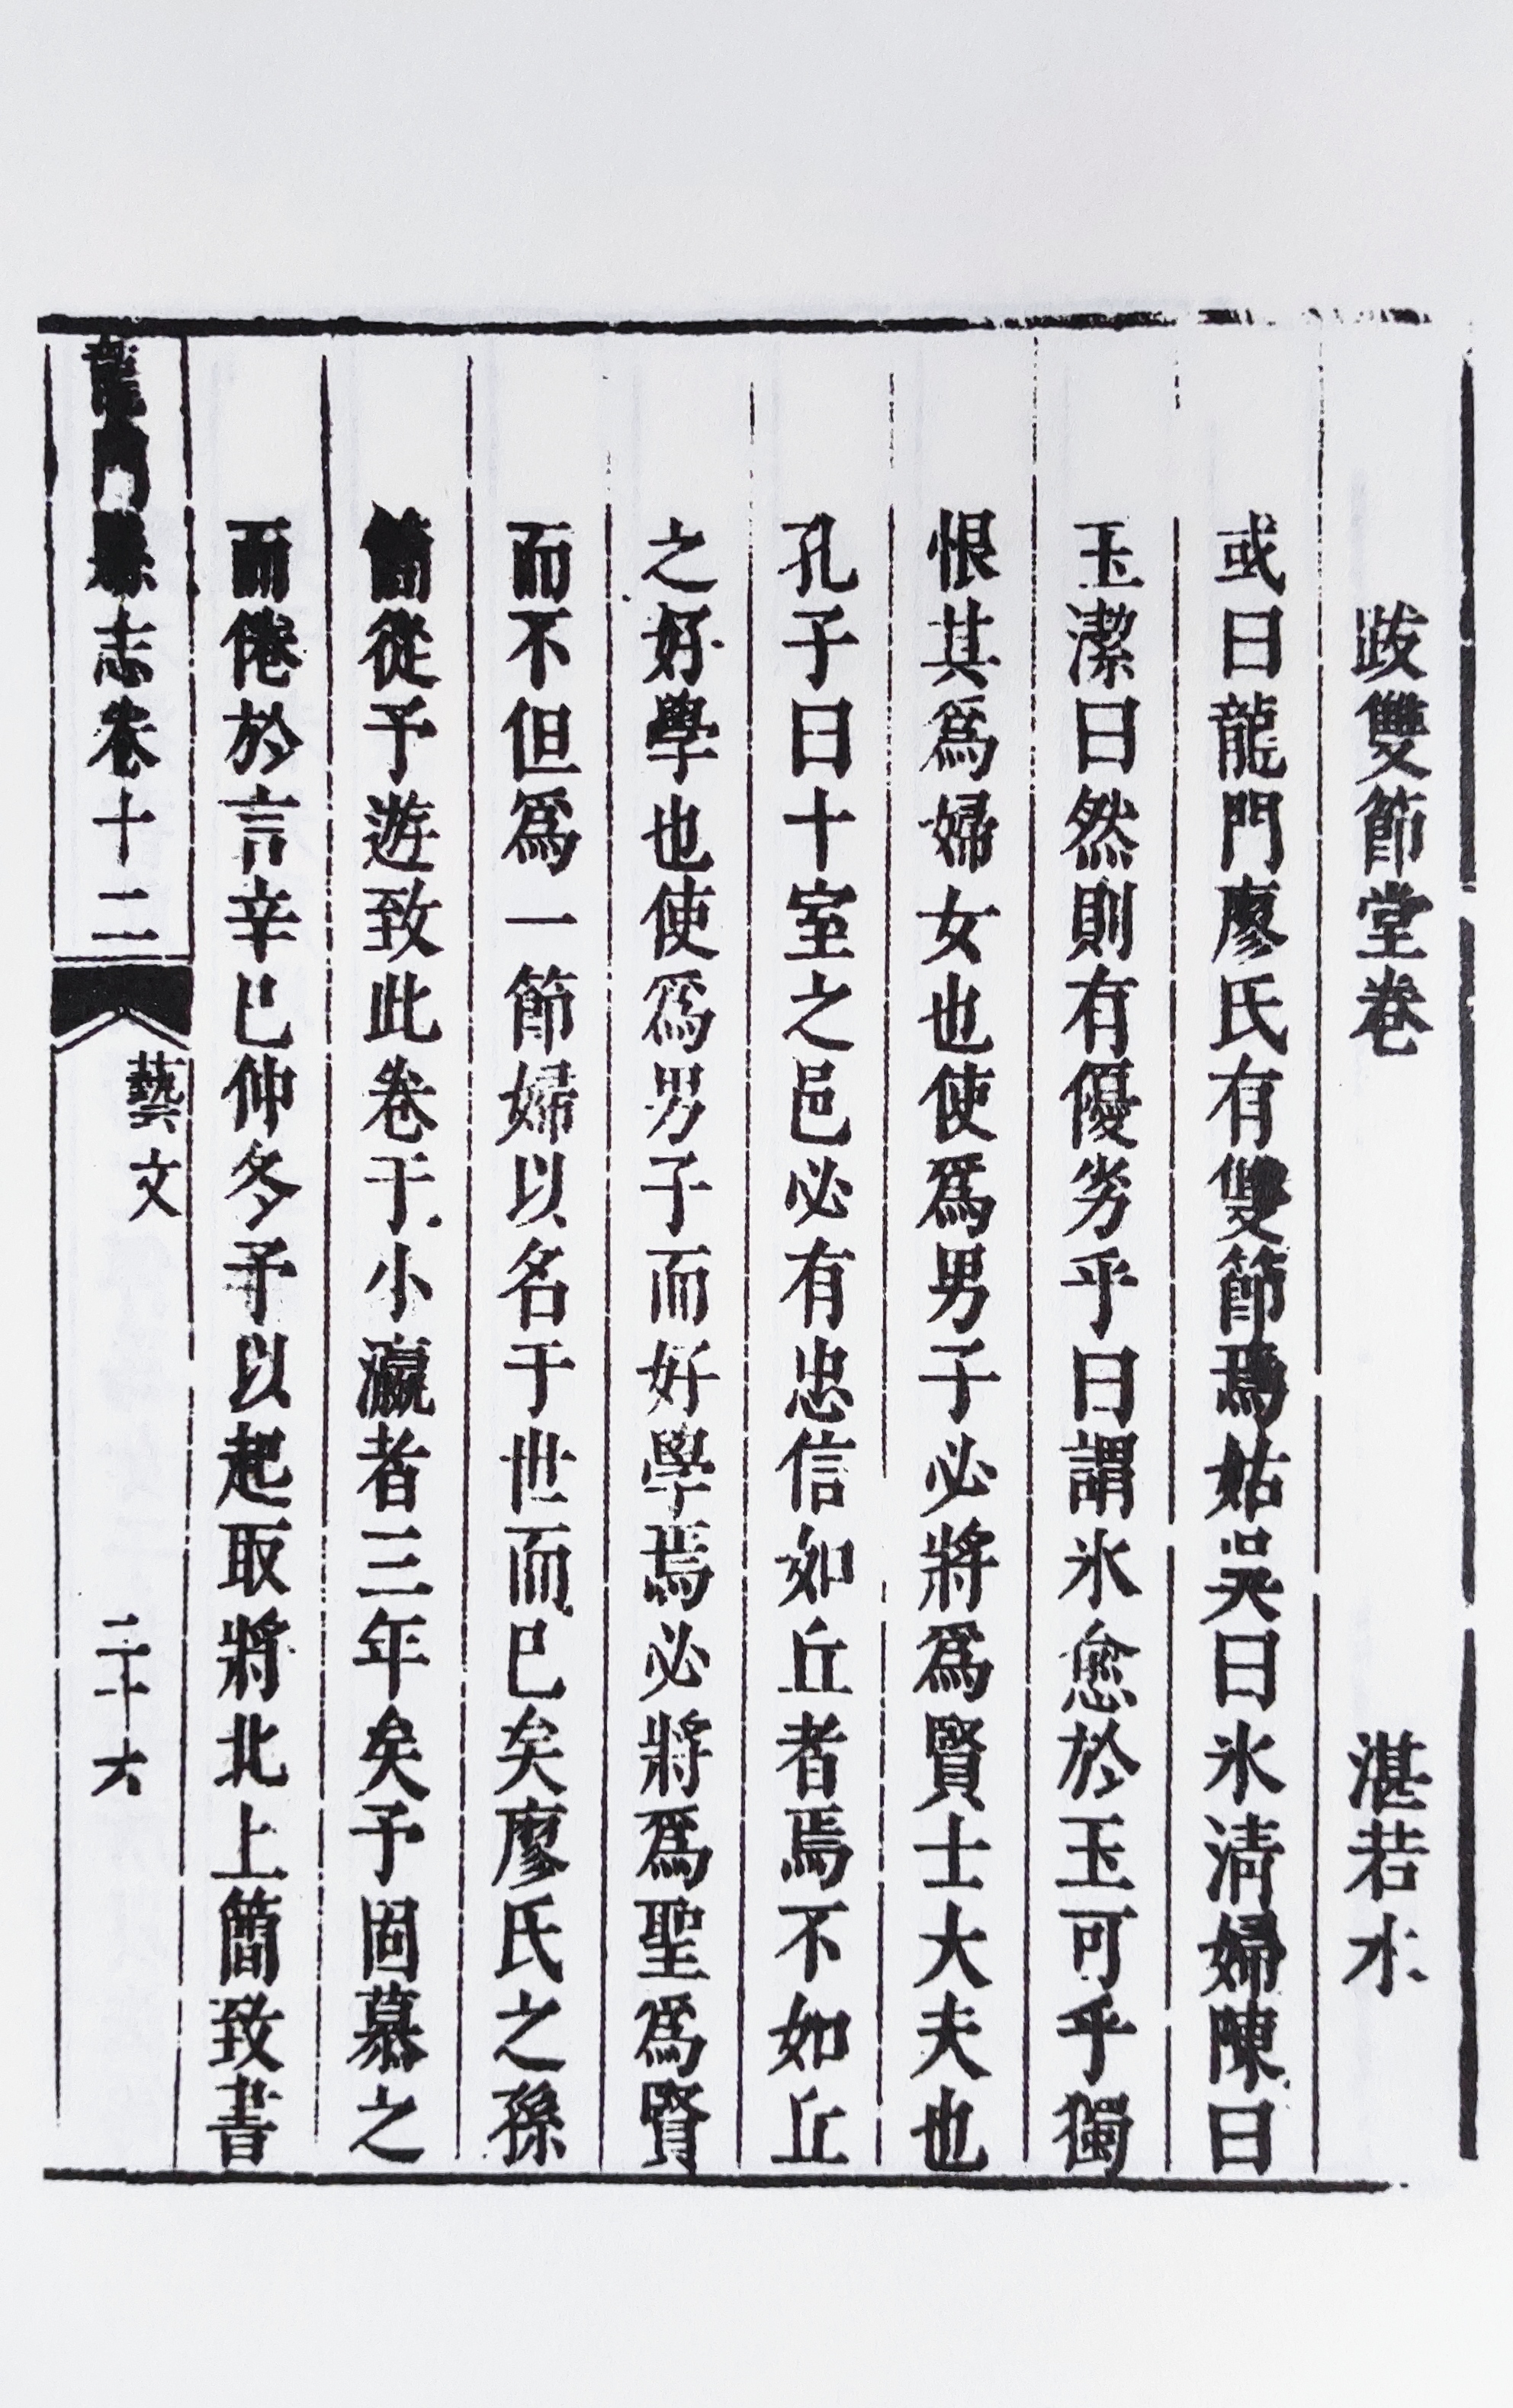 跋雙節堂卷　湛若水
或曰龍門廖氏有雙節焉姑吳曰氷清婦陳曰
玉潔曰然則有優劣乎曰謂氷愈於玉可乎獨
恨其爲婦女也使爲男子必將爲賢士大夫也
孔子曰十室之邑必有忠信如丘者焉不如丘
之好學也使爲男子而好學焉必將爲聖爲賢
而不但爲一節婦以名于世而已矣廖氏之孫
簡從予遊致此卷于小瀛者三年矣予固慕之
而倦於言辛巳仲冬予以起取將北上簡致書
龍門縣志卷十二　藝文　二十六